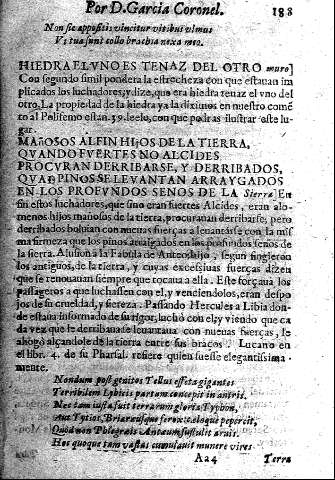 Por D. Garcia Coronel. 188
Non sic appositis vincitur vitibus ulmus
Vt tua sunt collo brachia nexa meo.
HIEDRA EL VNO ES TENAZ DEL OTRO muro]
Con segundo simil pondera la estrecheza con que estauan im
plicados los luchadores, y dize, que era hiedra tenaz el vno del
otro. La propiedad de la hiedra ya la diximos en nuestro comẽ
to al Polifemo estan. 39. leelo, con que podras ilustrar este lu-
gar.
MAñOSOS AL FIN HIjOS DE LA TIERRA,
QVANDO FVERTES NO ALCIDES
PROCVRAN DERRIBARSE, Y DERRIBADOS,
QVAL PINOS SE LEVANTAN ARRAYGADOS
EN LOS PROFVNDOS SENOS DE LA Sierra] En
fin estos luchadores, que sino eran fuertes Alcides, eran alo-
menos hijos mañosos de la tierra, procurauan derribarse, pero
derribados boluian con nueuas fuerças a leuantarse con la mis
ma firmeza que los pinos arraigados en los profundos senos de
la sierra. Alusion a la Fabula de Anteo hijo, segun fingieron
los antiguos, de la tierra, y cuyas excessiuas fuerças dizen
que se renouauan siempre que tocaua a ella. Este forçaua los
passageros a que luchassen con el, y venciendolos, eran despo
jos de su crueldad, y fereza. Passando Hercules a Libia don-
de estaua informado de su rigor, luchò con el, y viendo que ca
da vez que le derribaua se leuantaua con nueuas fuerças, le
ahogò alçandole de la tierra entre sus braços. Lucano en
el libr. 4. de su Pharsal. refiere quien fuesse elegantissima-
mente.
Nondum post genitos Tellus effeta gigantes
Terribilem Lybicis partum concepit in antris.
Nec tam iusta fuit terrarum gloria Typhon,
Aut Tytios, Briareusque ferox: cæloque pepercit,
Quod non Phlegræis Antæum sustulit aruis.
Hoc quoque tam vastas cumulauit munere vires
Aa4 Terra